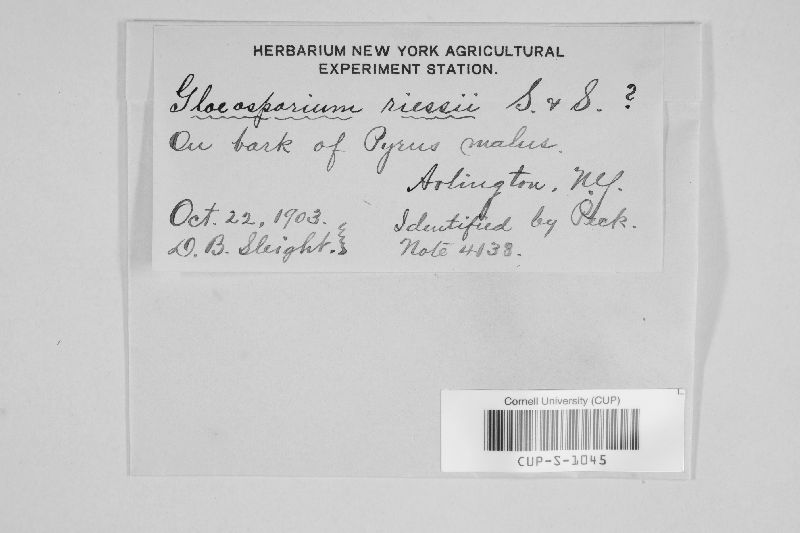 HERBARIUM NEW YORK AGRICULTURAL
EXPERIMENT STATION.
Gloeosporium riessii S. & S. ?
On bark of Pyrus malus.
Arlington, N.Y.
Oct. 22, 1903.
Identified by Peck.
D. B. Sleight.
Note 4138.
Cornell University (CUP)
CUP-S-1045